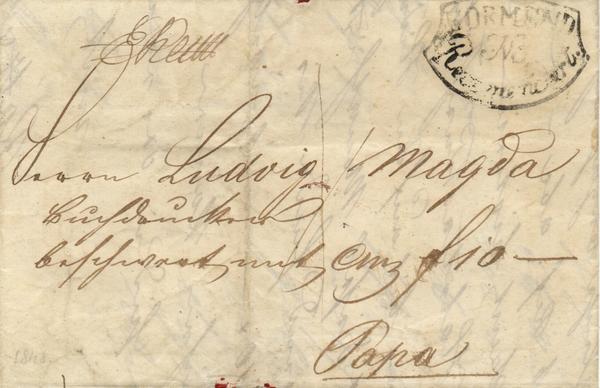 NORMAND
N3.
Recommandirt.
Herrn Ludvig Magda
Buchdrucker
beschwert mit CMz f 10 —
Papa